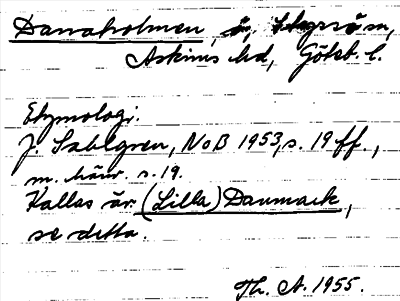 Danaholmen, ö, Styrsö sn,
Askims hd, Göteb. l.
Etymologi.
J. Sahlgren, NoB 1953, s. 19 ff.,
m. hänv. s. 19.
Kallas är (Lilla) Danmark,
se detta.
Th. A. 1955.